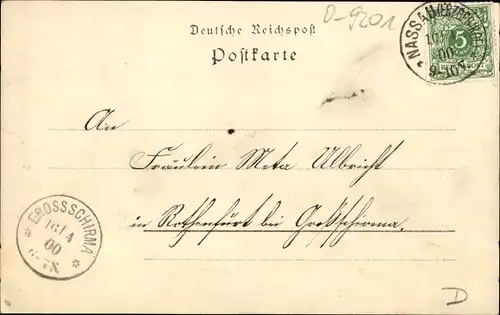 D-9201
Deutsche Reichspost
Postkarte
NASSAU (ERZGEBIRGE)
16/4
00
9-10V.
5
An
Fräulein Meta Ulbricht
in Rothenfurt bei Großschirma.
GROSSSCHIRMA
16/4
00
6-7N
D